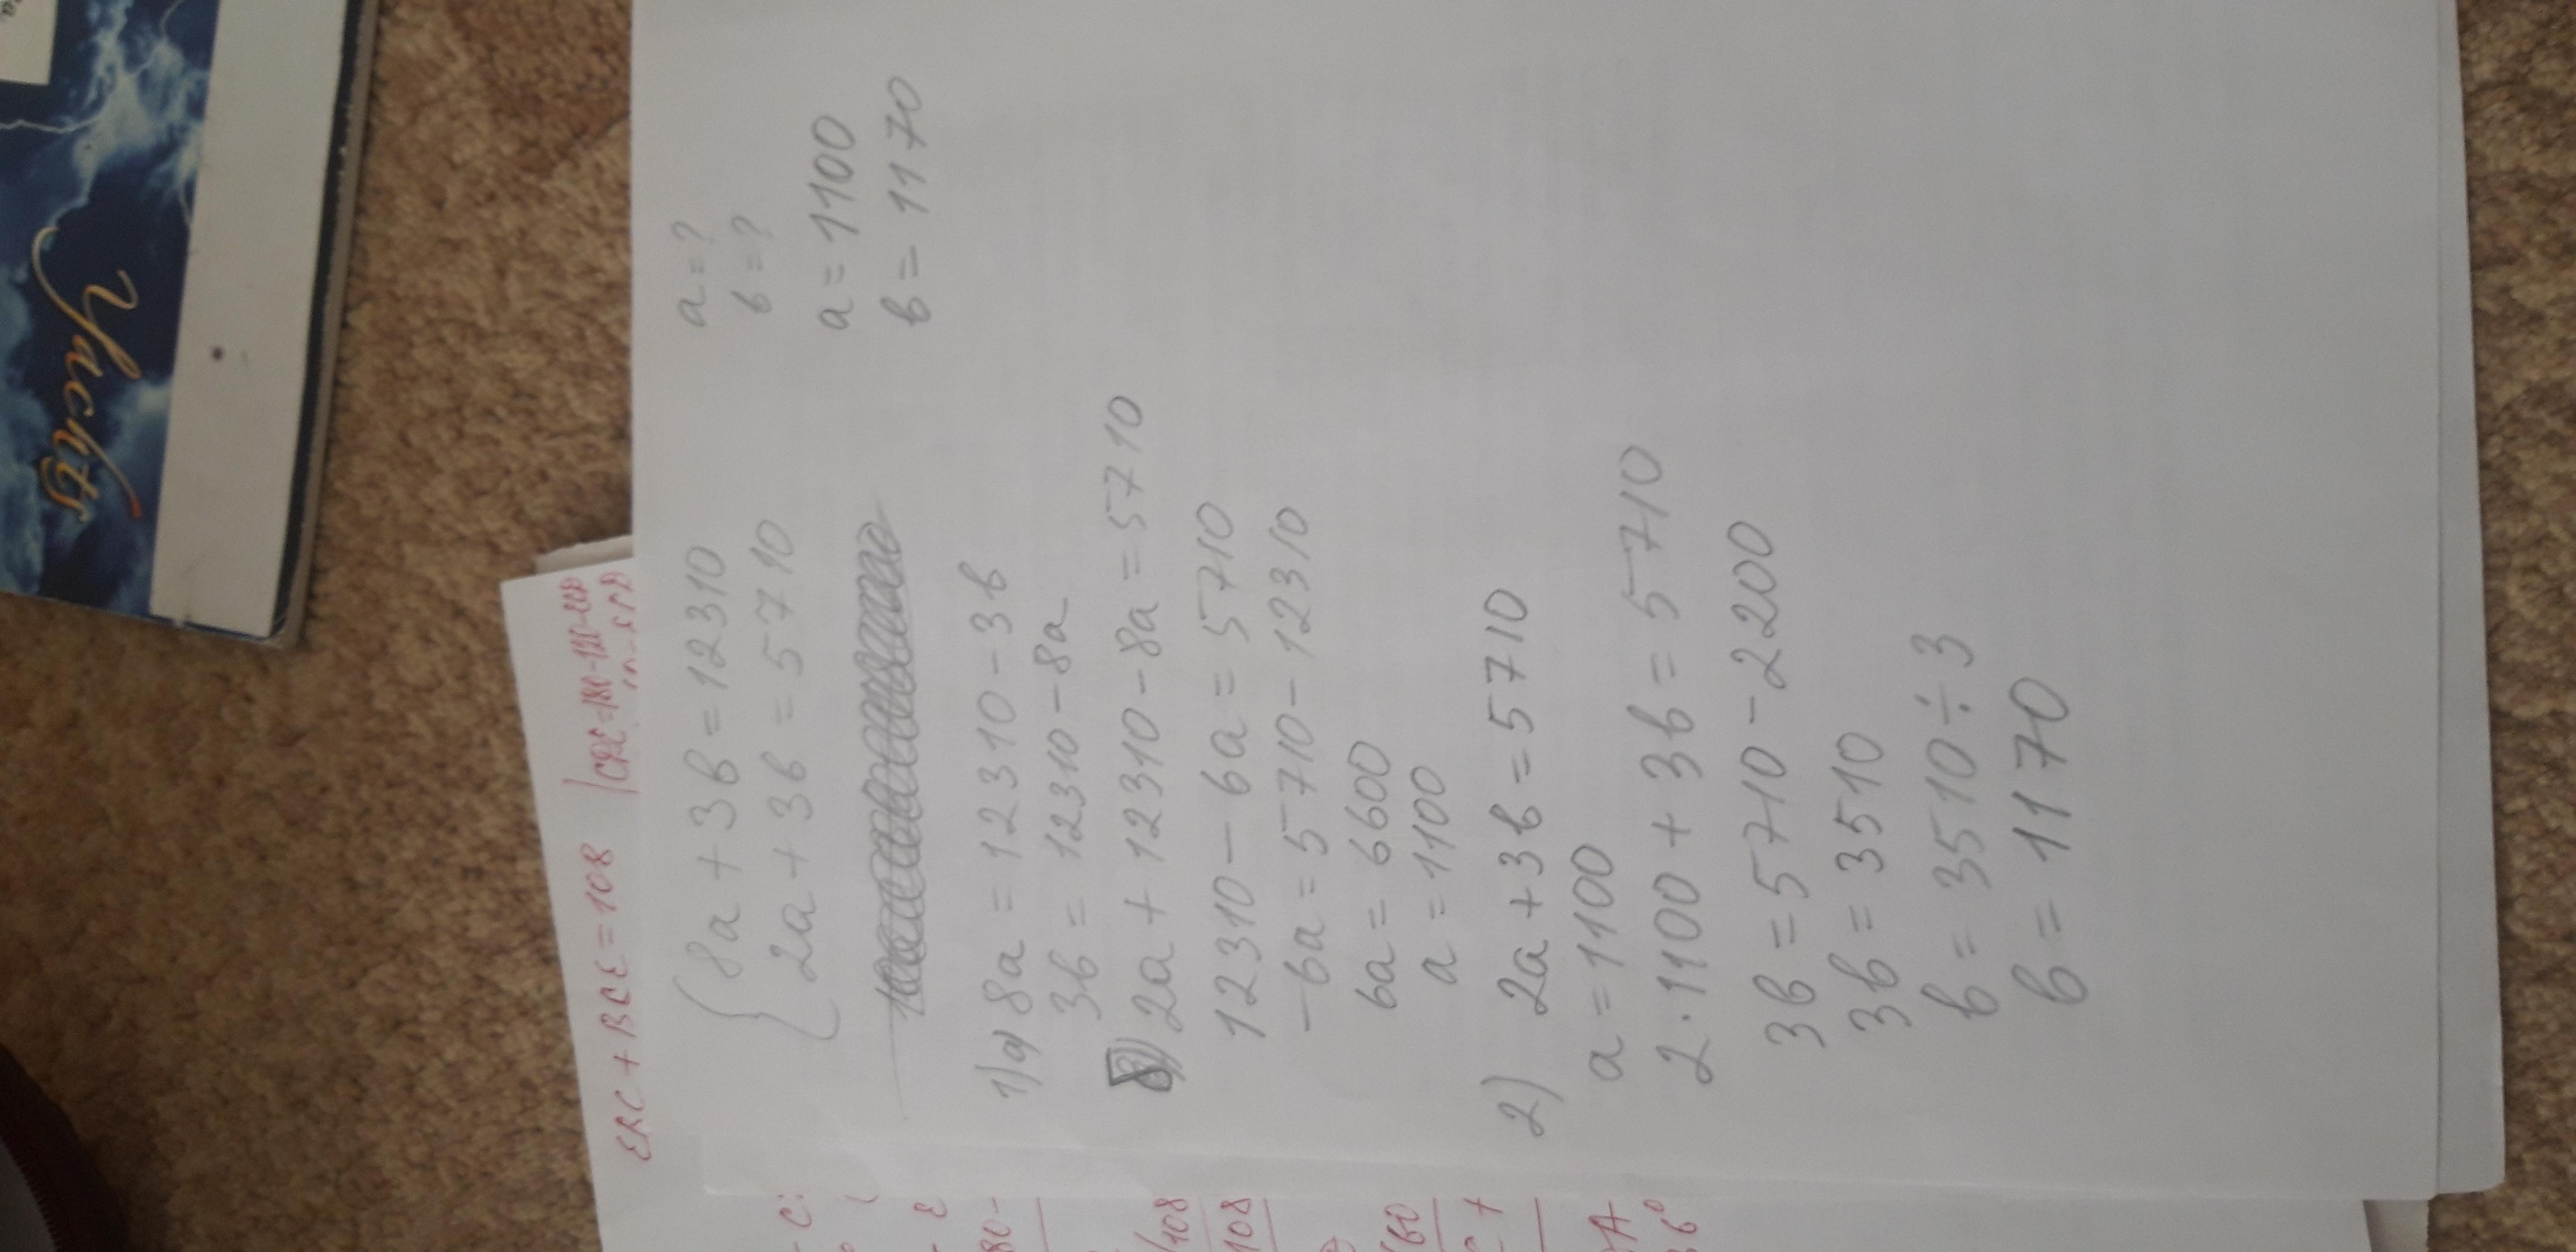 Yachts
ERC + BCE = 108
{8a + 3в = 12310
2a + 3в = 5710
a = ?
в = ?
a = 1100
в = 1170
1) a) 8a = 12310 - 3в
3в = 12310 - 8a
2a + 12310 - 8a = 5710
12310 - 6a = 5710
-6a = 5710 - 12310
6a = 6600
a = 1100
2) 2a + 3в = 5710
a = 1100
2 · 1100 + 3в = 5710
3в = 5710 - 2200
3в = 3510
в = 3510 ÷ 3
в = 1170
108
108